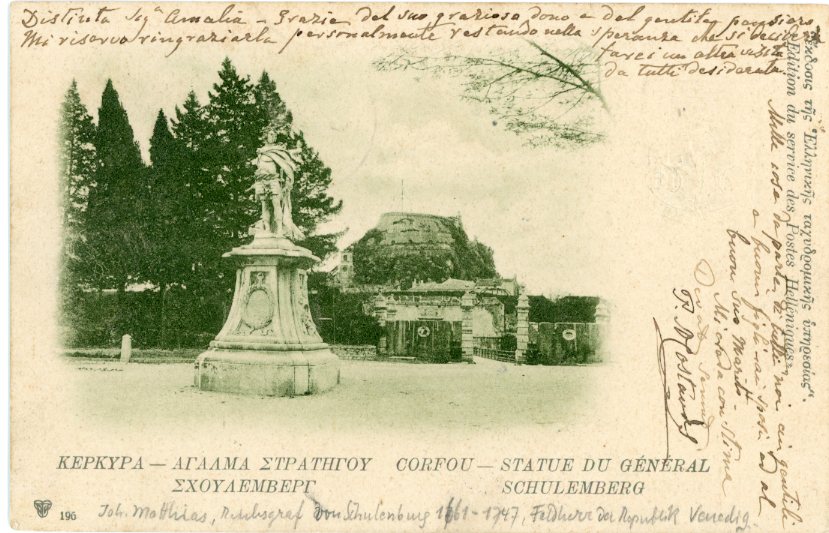 Distinta Sigª Amalia – Grazie del suo grazioso dono e del gentile pensiero
Mi riservo ringraziarla personalmente restando nella speranza che si deciderà
farci un altra visita
da tutti desiderata
Ἔκδοσις τῆς Ἑλληνικῆς ταχυδρομικῆς ὑπηρεσίας"
Edition du service des Postes Helléniques„
Mille cose da parte di tutti noi ai gentili
e buoni figli ai sposi ed al
buon suo marito
Mi creda con stima
ΚΕΡΚΥΡΑ — ΑΓΑΛΜΑ ΣΤΡΑΤΗΓΟΥ
ΣΧΟΥΛΕΜΒΕΡΓ
CORFOU — STATUE DU GÉNÉRAL
SCHULEMBERG
196
Joh. Matthias, Reichsgraf von Schulenburg 1661-1747, Feldherr der Republik Venedig.